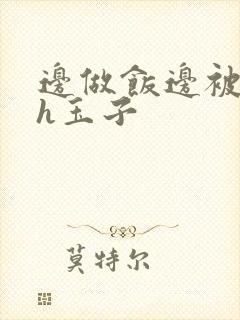 邊做飯邊被
h玉子
莫特尔